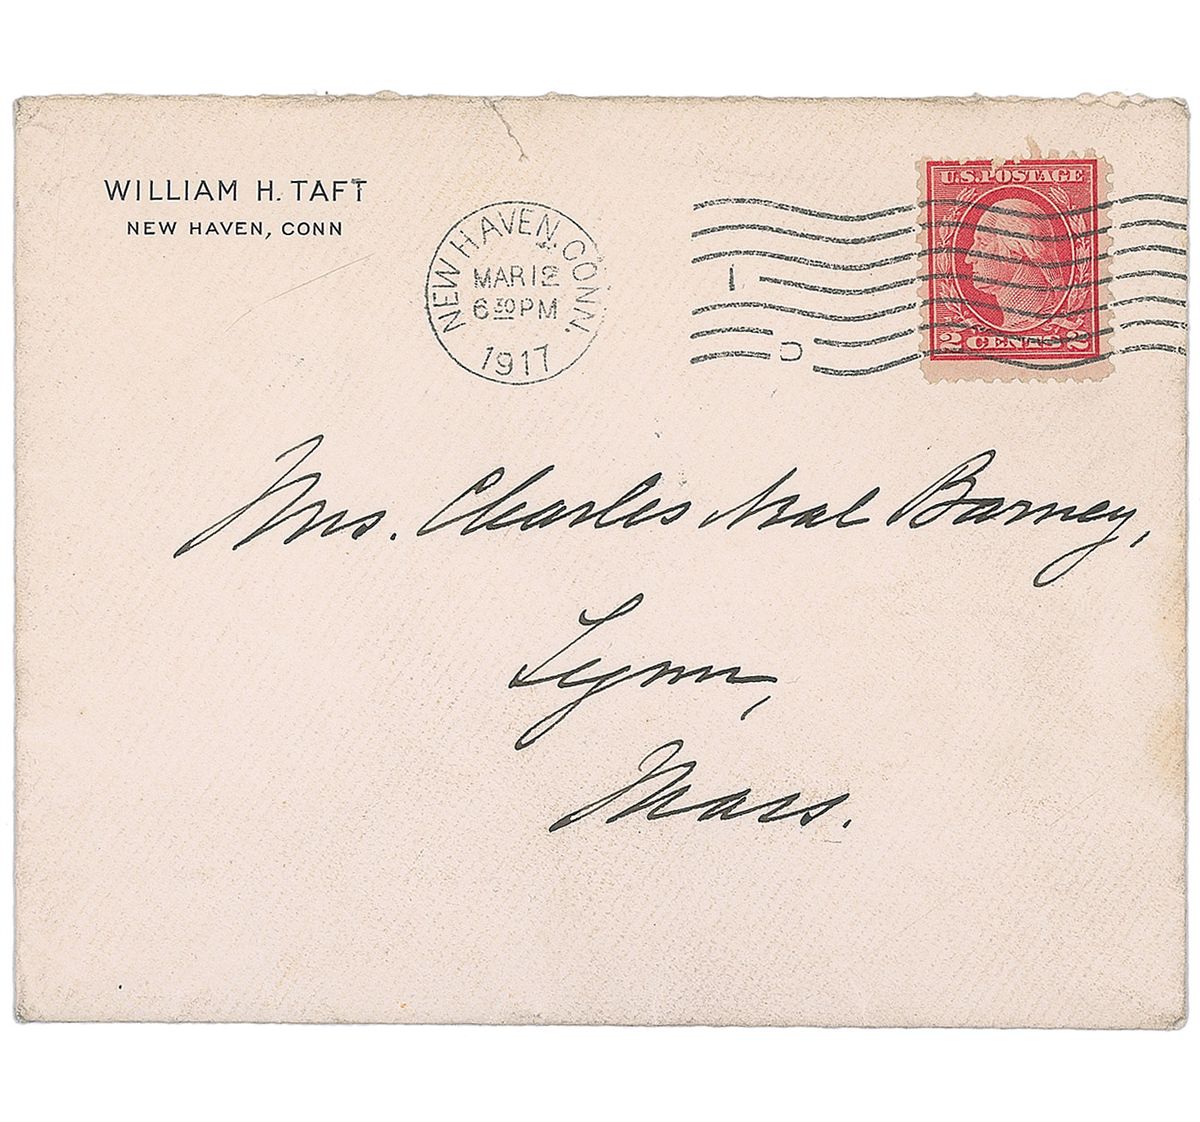 WILLIAM H. TAFT
NEW HAVEN, CONN
NEW HAVEN, CONN.
MAR 12
6 30 PM
1917
U.S. POSTAGE
2 CENTS 2
Mrs. Charles Neal Barney,
Lynn,
Mass.